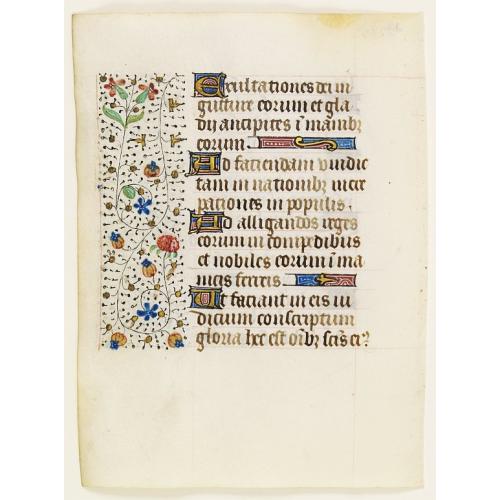 Exultationes dei in
gutture eorum et gla
dij ancipites ī manibz
eorum
Ad faciendam vindic
tam in nationibz incre
pationes in populis.
Ad alligandos reges
eorum in cōpedibus
et nobiles eorum ī ma
nicis ferreis
Ut faciant in eis iu
dicium conscriptum
gloria hec est oībz scīs ei?